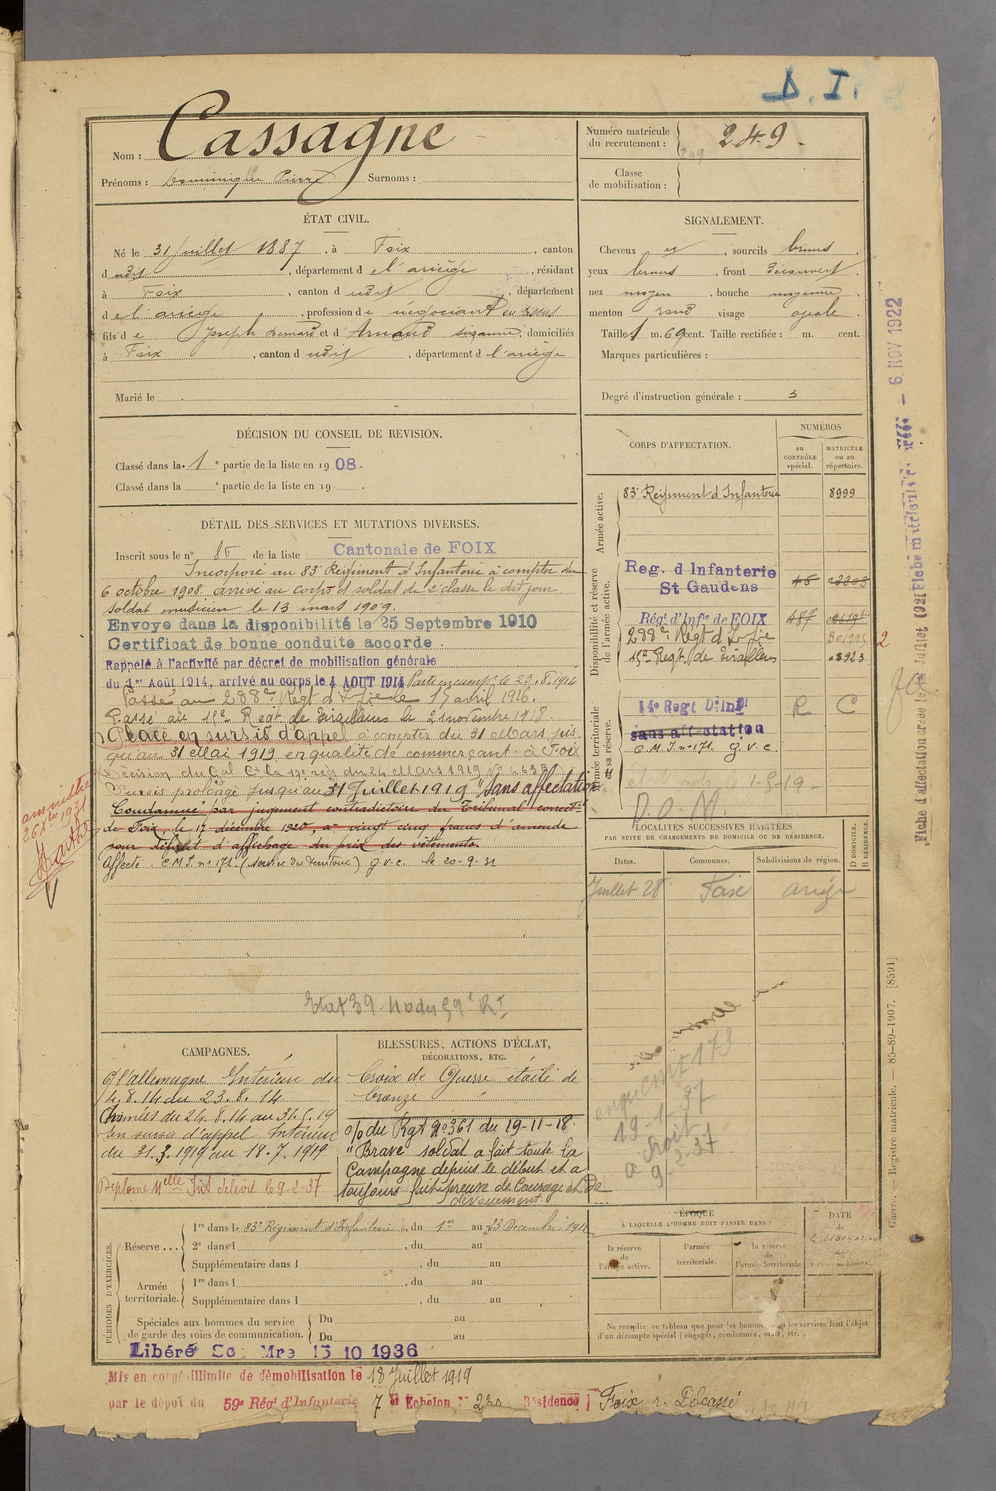 D. I.
Nom : Cassagne
Prénoms : Dominique Pierre Surnoms :
Numéro matricule du recrutement : 249
Classe de mobilisation :
ÉTAT CIVIL.
Né le 31 Juillet 1887, à Foix, canton
dudit, département de l'ariège, résidant
à Foix, canton dudit, département
de l'ariège, profession de négociant en tissus
fils de Joseph Bernard et d'Arnaud Suzanne, domiciliés
à Foix, canton dudit, département de l'ariège
Marié le
SIGNALEMENT.
Cheveux et, sourcils bruns
yeux bruns, front découvert
nez moyen, bouche moyenne
menton rond visage ovale
Taille 1 m. 69 cent. Taille rectifiée : m. cent.
Marques particulières :
Degré d'instruction générale : 3
DÉCISION DU CONSEIL DE REVISION.
Classé dans la 1e partie de la liste en 1908.
Classé dans la e partie de la liste en 19 .
DÉTAIL DES SERVICES ET MUTATIONS DIVERSES.
Inscrit sous le n° 85 de la liste Cantonale de FOIX
Incorporé au 83e Régiment d'Infanterie à compter du
6 octobre 1908 arrivé au corps et soldat de 2e classe le dit jour
Soldat musicien le 13 mars 1909.
Envoyé dans la disponibilité le 25 Septembre 1910
Certificat de bonne conduite accordé.
Rappelé à l'activité par décret de mobilisation générale
du 1er Août 1914, arrivé au corps le 4 AOUT 1914 Parti en camp. le 23.8.1914
Passé au 288e Regt d'Infie le 17 avril 1916.
Passé au 15e Regt de Tirailleurs le 21 novembre 1918
Placé en sursis d'appel à compter du 31 Mars jus
qu'au 31 Mai 1919 en qualité de commerçant à Foix
Décision du Gal Ct la 17e rég du 24 Mars 1919
Sursis prolongé jusqu'au 31 Juillet 1919 "Sans affectation
Condamné par jugement contradictoire du Tribunal correctl
de Foix, le 17 décembre 1920, à vingt cinq francs d'amende
pour défaut d'affichage du prix des vêtements.
Affecté C.M.I. n° 171 (service du territoire) G.V.C. le 20-9-31
amnistié
CORPS D'AFFECTATION.
NUMÉROS
au CONTRÔLE spécial.
MATRICULE ou au répertoire.
Armée active.
83e Régiment d'Infanterie 8999
Disponibilité et réserve de l'armée active.
Reg. d'Infanterie St Gaudens
Régt d'Infie de FOIX 487
288e Regt d'Infie
15e Regt de Tirailleurs
2
Armée territoriale et sa réserve.
14e Regt D'Infi R C
sans affectation
C.M.I. n° 171. G.V.C.
D.O.M.
LOCALITÉS SUCCESSIVES HABITÉES
PAR SUITE DE CHANGEMENTS DE DOMICILE OU DE RÉSIDENCE.
Dates. Communes. Subdivisions de région. D DOMICILE. R RÉSIDENCE.
Juillet 28 Foix ariège
19-1-37
a droit
9-2-37
CAMPAGNES.
c/ l'allemagne Intérieur du
4.8.14 au 23.8.14
Armées du 24.8.14 au 31.5.19
en sursis d'appel Intérieur
du 31.3.1919 au 18.7.1919
Diplôme Melle Int délivré le 9-2-37
BLESSURES, ACTIONS D'ÉCLAT, DÉCORATIONS, ETC.
Croix de Guerre étoile de
bronze
O/ du Rgt n° 361 du 19-11-18
"Brave soldat a fait toute la
Campagne depuis le début et a
toujours fait preuve de Courage et de
dévouement.
PÉRIODES D'EXERCICES.
Réserve...
1re dans le 83e Régiment d'Infanterie, du 1er au 23 Décembre 1911
2e dans l , du au
Supplémentaire dans l , du au
Armée territoriale.
1re dans l , du au
Supplémentaire dans l , du au
Spéciales aux hommes du service de garde des voies de communication.
Du au
Du au
Libéré Sce Mre 15 10 1936
ÉPOQUE
À LAQUELLE L'HOMME DOIT PASSER DANS :
la réserve de l'armée active. l'armée territoriale. la réserve de l'armée territoriale
DATE de
Ne remplir ce tableau que pour les hommes dont les services font l'objet
d'un décompte spécial (engagés, condamnés, omis, etc.).
Mis en congé illimité de démobilisation le 18 Juillet 1919
par le dépôt du 59e Régt d'Infanterie 7e Echelon Résidence Foix r. Delcassé
6 NOV 1922
Guerre. — Registre matricule. — 85-89-1907. [8591]